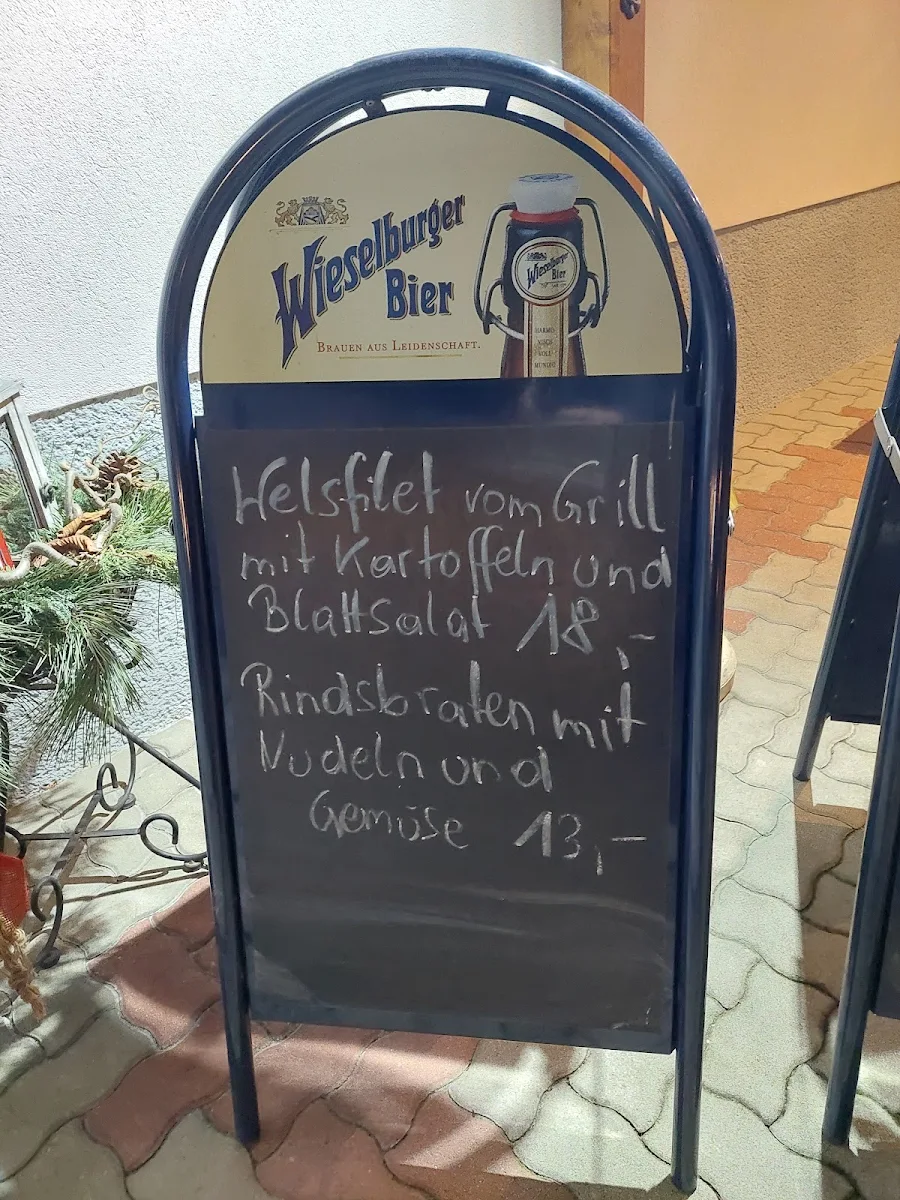 Wieselburger
Bier
BRAUEN AUS LEIDENSCHAFT.
Wieselburger
Bier
HARMO
NISCH
VOLL
MUNDIG
Welsfilet vom Grill
mit Kartoffeln und
Blattsalat 18,-
Rindsbraten mit
Nudeln und
Gemüse 13,-